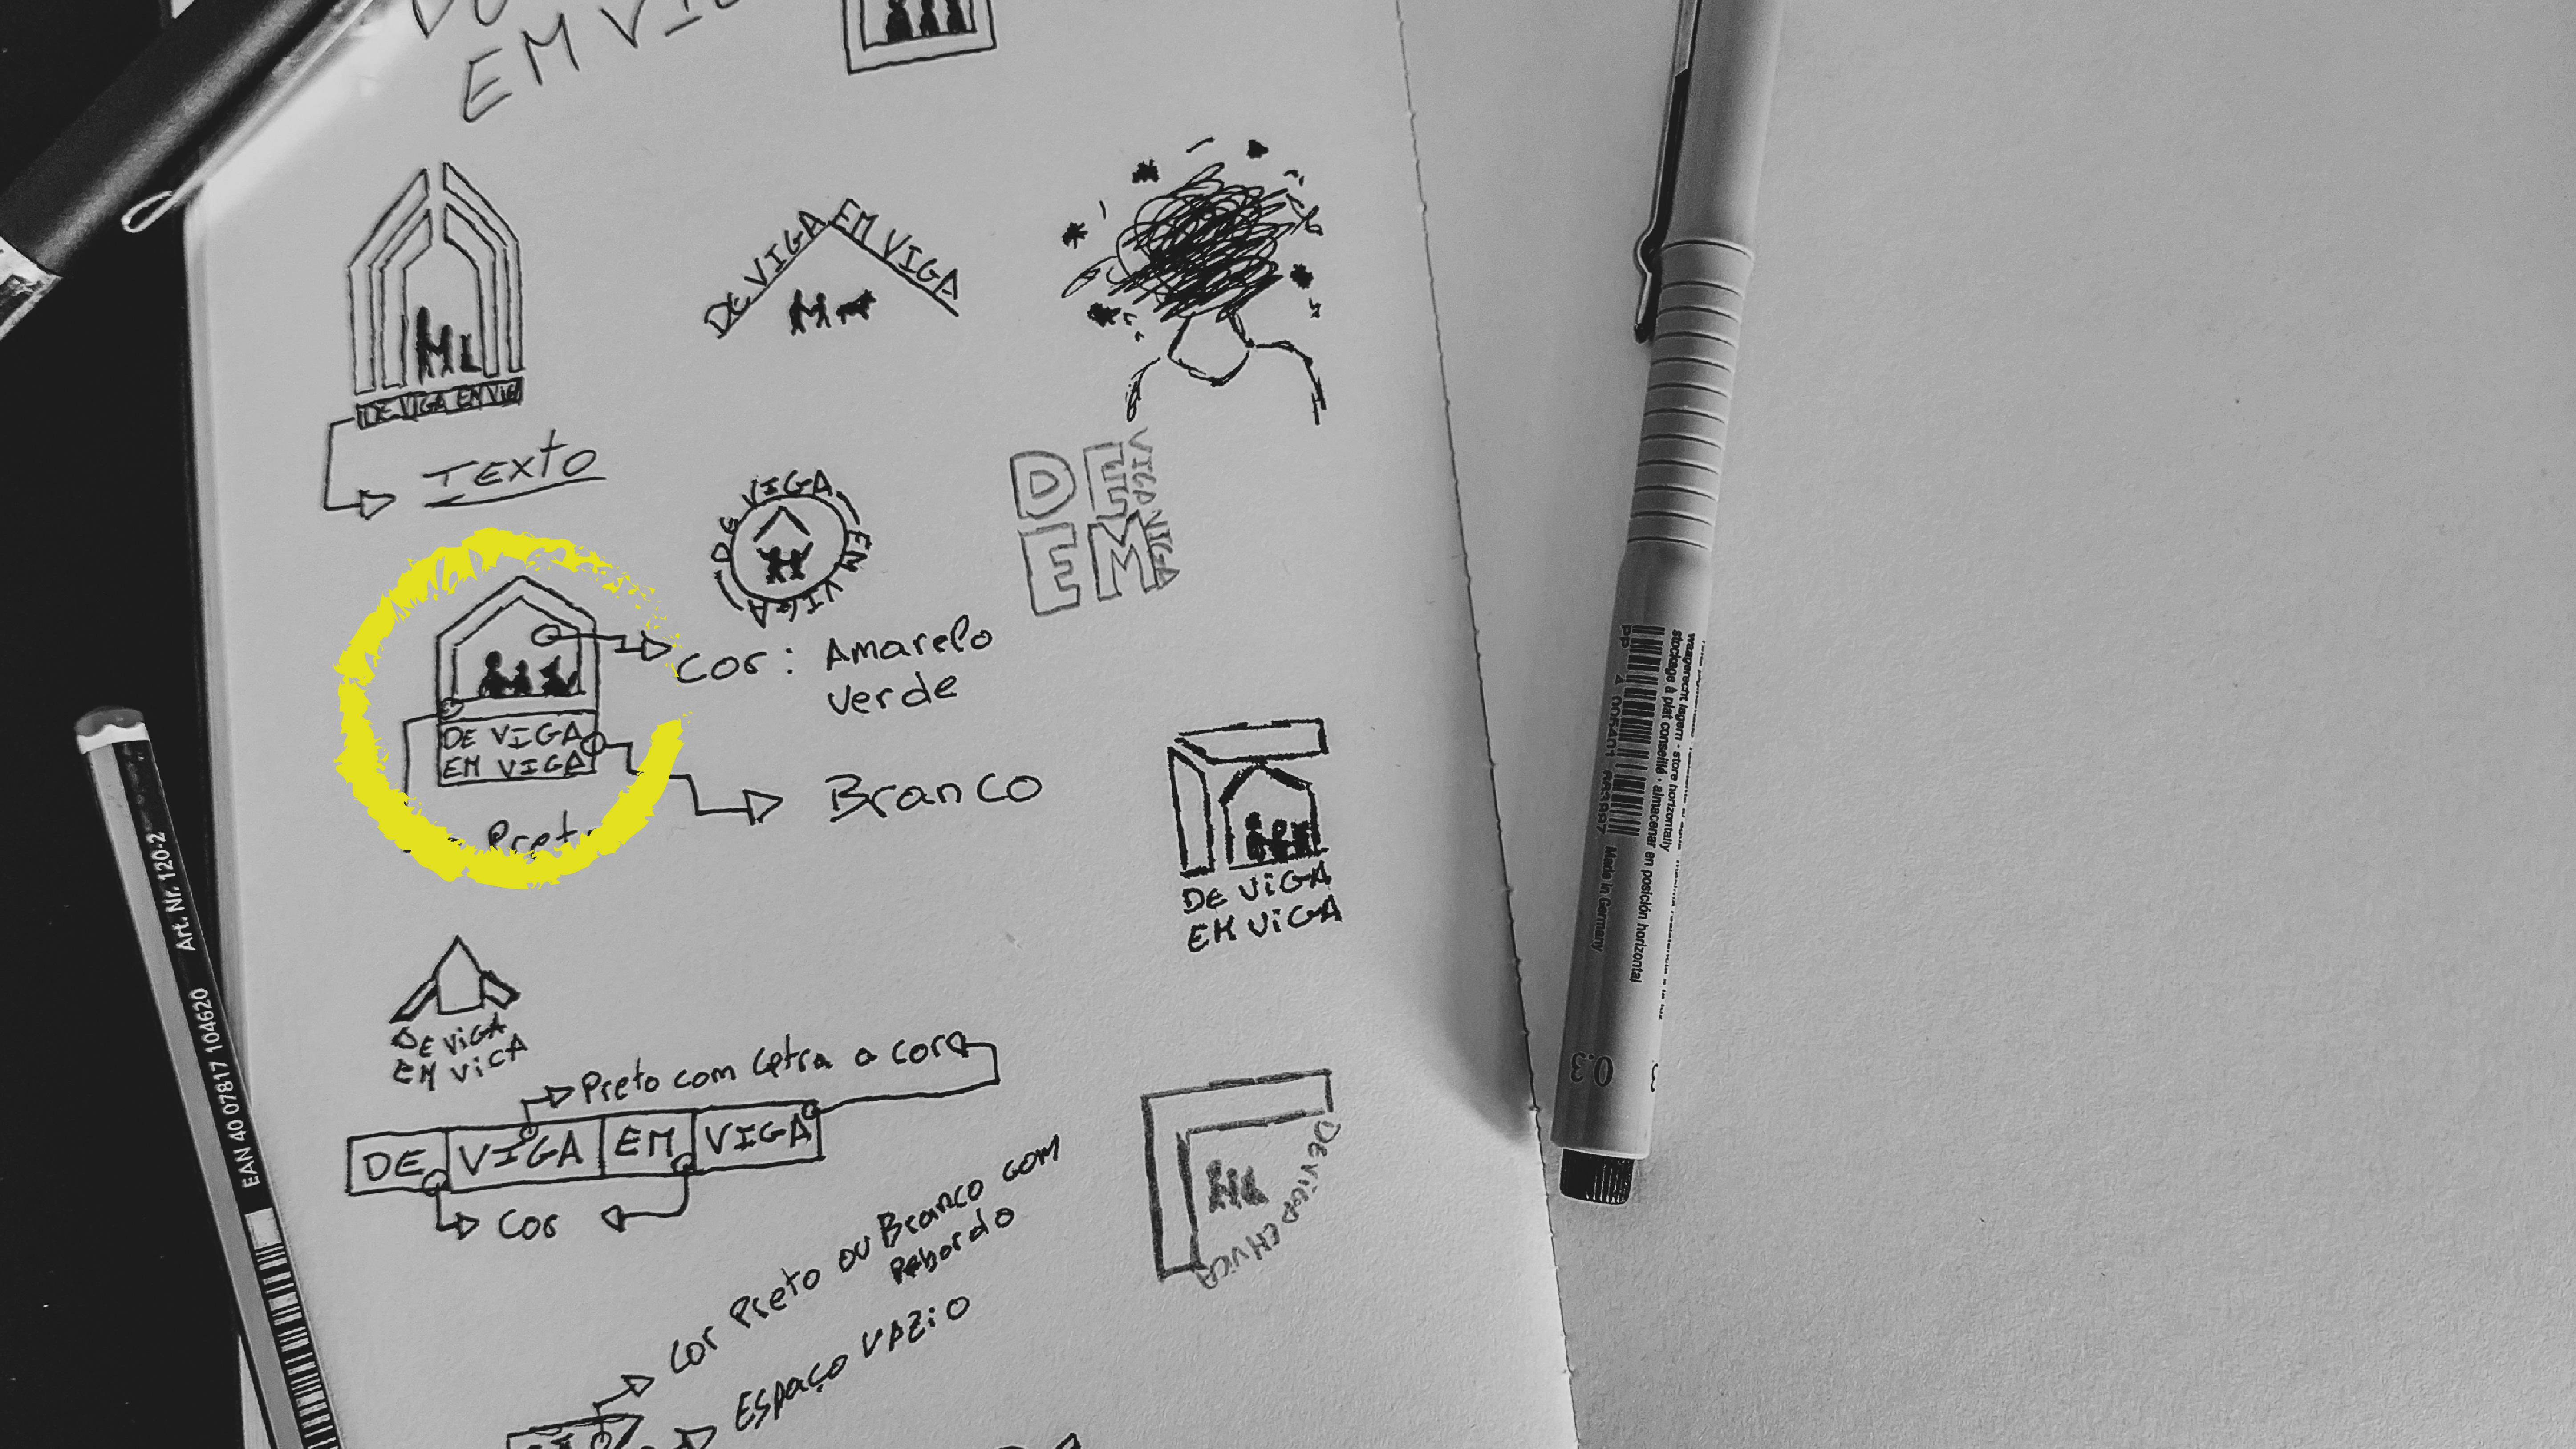 EM VIG
DE VIGA EM VIGA
TEXTO
DE VIGA EM VIGA
DE VIGA EM VIGA
DE VIGA
EM VIGA
Cor: Amarelo
verde
DE VIGA
EM VIGA
Branco
Preto
DE VIGA
EM VIGA
DE VIGA
EM VIGA
Preto com letra a cor
DE VIGA EM VIGA
Cor
DE VIGA EM VIGA
Cor Preto ou Branco com
Rebordo
ESPAÇO VAZIO
Art. Nr. 120-2
EAN 40 07817 104620
waagerecht lagern · store horizontally
stockage à plat conseillé · almacenar en posición horizontal
PP
Made in Germany
0.3